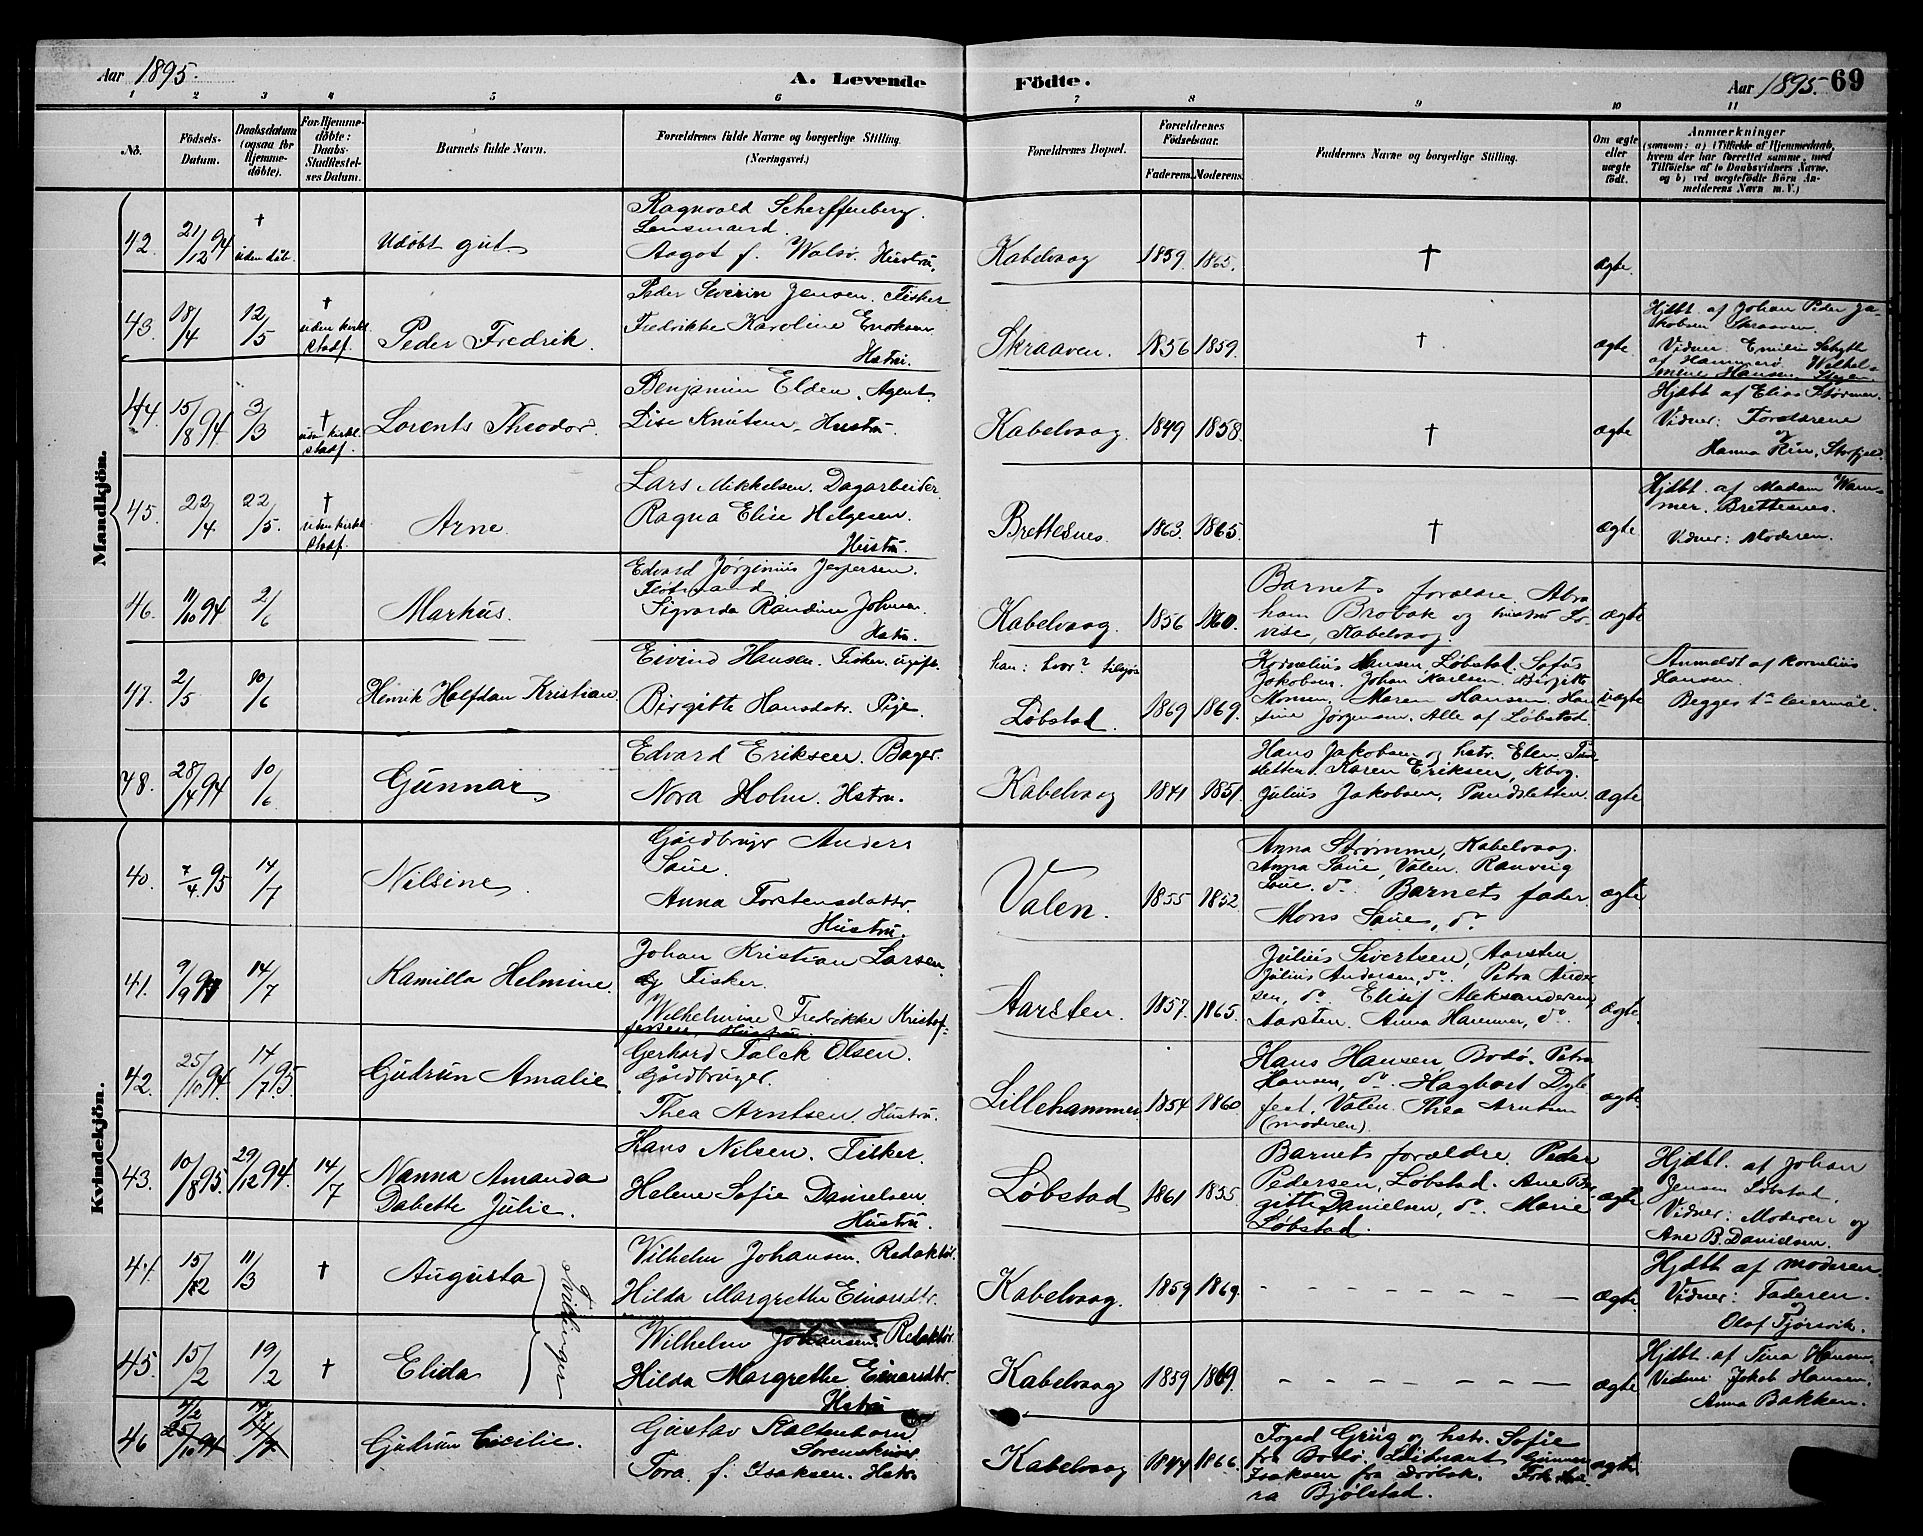 Aar 1895.
A. Levende Födte.
Aar 1895. 69
1 2 3 4 5 6 7 8 9 10 11
No.
Födsels-Datum.
Daabsdatum (ogsaa for Hjemme-döbte).
For Hjemme-döbte: Daabs-Stadfæstel-ses Datum.
Barnets fulde Navn.
Forældrenes fulde Navne og borgerlige Stilling. (Næringsvei.)
Forældrenes Bopæl.
Forældrenes Födselsaar.
Faderens. Moderens.
Faddernes Navne og borgerlige Stilling.
Om ægte eller uægte født.
Anmærkninger
(saasom: a) i Tilfælde af Hjemmedaab,
hvem der har forrettet samme, med
Tilföielse af to Daabsvidners Navne,
og b) ved uægtefödte Börn An-
melderens Navn m. V.)
Mandkjön.
42. 21/12 94 † uden dåb. Udøbt gut.
Ragnvald Scherffenberg.
Lensmand.
Aagot f. Walsø. Hustru.
Kabelvaag 1859. 1865. † ægte.
43. 18/4 12/5 † uden kirkl. stadf. Peder Fredrik.
Peder Severin Jensen. Fisker
Fredrikke Karoline Enoksen
Hstru.
Skraaven. 1856 1859. † ægte
Hjdbt. af Johan Peder Ja-
kobsen Skraaven.
Vidner. Emilie Schytt
af Hammerø Wilhel-
mine Hansen
44. 15/8 94 3/3 † uden kirkl. stadf. Lorents Theodor.
Benjamin Elden. Agent.
Lise Knutsen. Hustru.
Kabelvaag. 1849 1858. † ægte
Hjdbt af Elias Størmer.
Vidner: Forældrene
og
Hanna Rin, Storfjeld.
45. 22/4 22/5. † uden kirkl. stadf. Arne
Lars Mikkelsen. Dagarbeider.
Ragna Elise Helgesen.
Hustru.
Brettesnes. 1863. 1865. † Ægte
Hjdbt. af Madam Wam-
mer. Brettesnes.
Vidner: Moderen.
46. 11/10 94 2/6 Markus.
Edvard Jørginius Jespersen.
Sigvarda Randine Johnsen.
Hstru.
Kabelvaag. 1856 1860.
Barnets forældre. Abra
ham Brobak og hustru Lo-
vise, Kabelvaag.
ægte
47. 2/5 10/6 Henrik Halfdan Kristian
Eivind Hansen. Fisker. ugift.
Birgitte Hansdatr. Pige.
han: hvor? tilsjøs
Løbstad. 1869 1869.
Kornelius Hansen Løbstad. Sofus
Jakobsen. Johan Karlsen. Birgitte
Monsen. Maren Hansen. Han-
sine Jørgensen. Alle af Løbstad.
uægte
Anmeldt af Kornelius
Hansen.
Begges 1ste leiermål.
48. 28/4 94 10/6 Gunnar
Edvard Eriksen. Bager.
Nora Holm. Hstru.
Kabelvaag 1841 1851.
Hans Jakobsen og hstr. Elen Pund-
sletten. Karen Eriksen, Kbvg.
Julius Jakobsen, Pundsletten.
ægte
Kvindekjön.
40. 7/4 95 14/7 Nilsine.
Gårdbruger Anders
Saue.
Anna Torstensdatter.
Hustru.
Valen. 1855 1852.
Anna Strømme, Kabelvaag.
Anna Saue, Valen. Ranveig
Saue. do. Barnets fader.
Mons Saue, do
ægte
41. 9/9 14/7 Kamilla Helmine.
Johan Kristian Larsen
Fisker.
Wilhelmine Fredrikke Kristof-
fersen, Hustru.
Aarsten. 1857. 1865.
Julius Sivertsen, Aarsten.
Julius Andersen, do. Petra Ander
sen, do. Elisif Aleksandersen
Aarsten. Anna Hammer, do.
ægte.
42. 25/10 94 14/7 95 Gudrun Amalie
Gerhard Falck Olsen.
Gårdbruger.
Thea Arntsen. Hustru.
Lillehammer 1854 1860
Hans Hansen, Bodø. Petra
Hansen, do. Hagbart Dyb
fest, Valen. Thea Arntsen
(moderen).
ægte
43. 10/8 95. 29/12 94. 14/7 Nanna Amanda
Dabette Julie.
Hans Nilsen. Fisker.
Helene Sofie Danielsen
Hustru.
Løbstad 1861 1855
Barnets forældre. Peder
Pedersen, Løbstad. Ane Bir
gitte Danielsen, do. Marie
Løbstad.
ægte
Hjdbt. af Johan
Jensen Løbstad.
Vidner: Moderen og
Ane B. Danielsen.
44. 15/2 11/3 † Augusta
Tvillinger
Vilhelm Johansen. Redaktør.
Hilda Margrethe Einarsdtr.
Kabelvaag. 1859 1869. – – – – – – – – ægte
Hjdbt af moderen.
Vidner: Faderen.
og
Olaf Fjørsvik.
45. 15/2 19/2 † Elida
Wilhelm Johansen. Redaktør.
Hilda Margrethe Einarsdtr.
Hstru
Kabelvaag 1859 1869. – – – – – – – ægte
Hjdbt. af Tina Hansen.
Vidner Jakob Hansen.
Anna Bakken.
46. 25/10 94 14/7 Gudrun Cecilie.
Gustav Kaltenborn
Sorenskriver
Tora f. Isaksen. Hstru
Kabelvaag 1844 1866.
Foged Grüg og hstr. Sofie
fra Bodø. Løitnant Gunnar
Isaksen fra Drøbak. Frk.
ra Bjølstad.
ægte